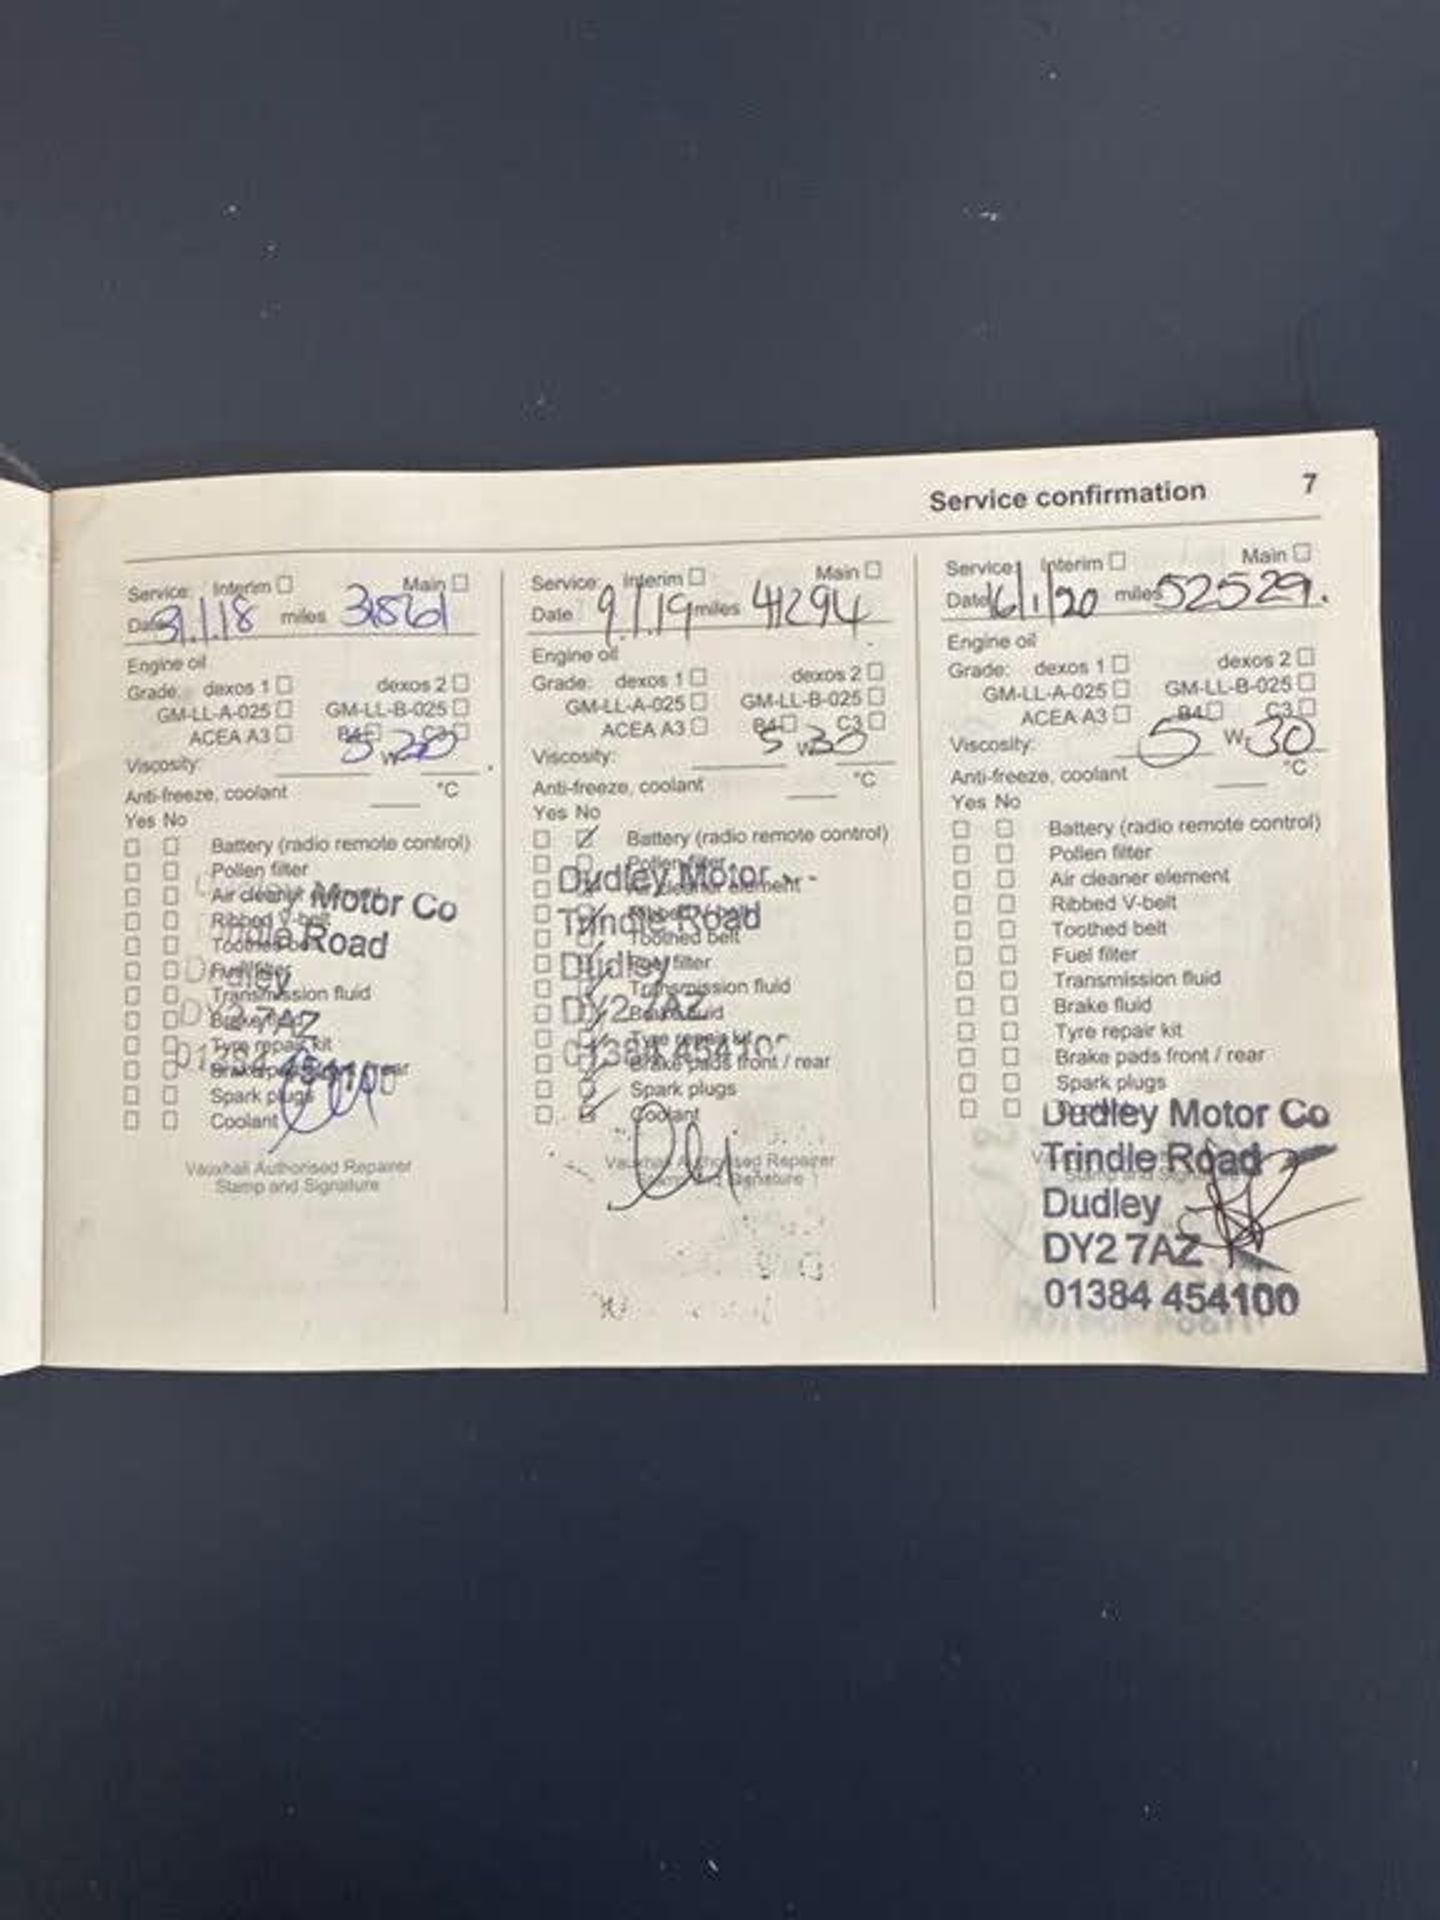 Service confirmation 7
Service: Interim Main
Date 31.1.18 miles 31561
Engine oil
Grade: dexos 1 dexos 2
GM-LL-A-025 GM-LL-B-025
ACEA A3 B4 C3
Viscosity: 5 W
Anti-freeze, coolant °C
Yes No
Battery (radio remote control)
Pollen filter
Air cleaner
Motor Co
Ribbed V-belt
Toothed belt
Road
Fuel filter
Dudley
Transmission fluid
DY2 7AZ
Tyre repair kit
01384 454100
Spark plugs
Coolant
Vauxhall Authorised Repairer
Stamp and Signature
Service: Interim Main
Date 9.1.19 miles 41294
Engine oil
Grade: dexos 1 dexos 2
GM-LL-A-025 GM-LL-B-025
ACEA A3 B4 C3
Viscosity: 5 W 30
Anti-freeze, coolant °C
Yes No
Battery (radio remote control)
Pollen filter
Dudley Motor
Air cleaner element
Ribbed V-belt
Trindle Road
Toothed belt
Dudley
Fuel filter
Transmission fluid
DY2 7AZ
Brake fluid
Tyre repair kit
01384 45410
Brake pads front / rear
Spark plugs
Coolant
Vauxhall Authorised Repairer
Stamp and Signature
Service: Interim Main
Date 16/1/20 miles 52529.
Engine oil
Grade: dexos 1 dexos 2
GM-LL-A-025 GM-LL-B-025
ACEA A3 B4 C3
Viscosity: 5 W 30
Anti-freeze, coolant °C
Yes No
Battery (radio remote control)
Pollen filter
Air cleaner element
Ribbed V-belt
Toothed belt
Fuel filter
Transmission fluid
Brake fluid
Tyre repair kit
Brake pads front / rear
Spark plugs
Dudley Motor Co
Trindle Road
Dudley
DY2 7AZ
01384 454100